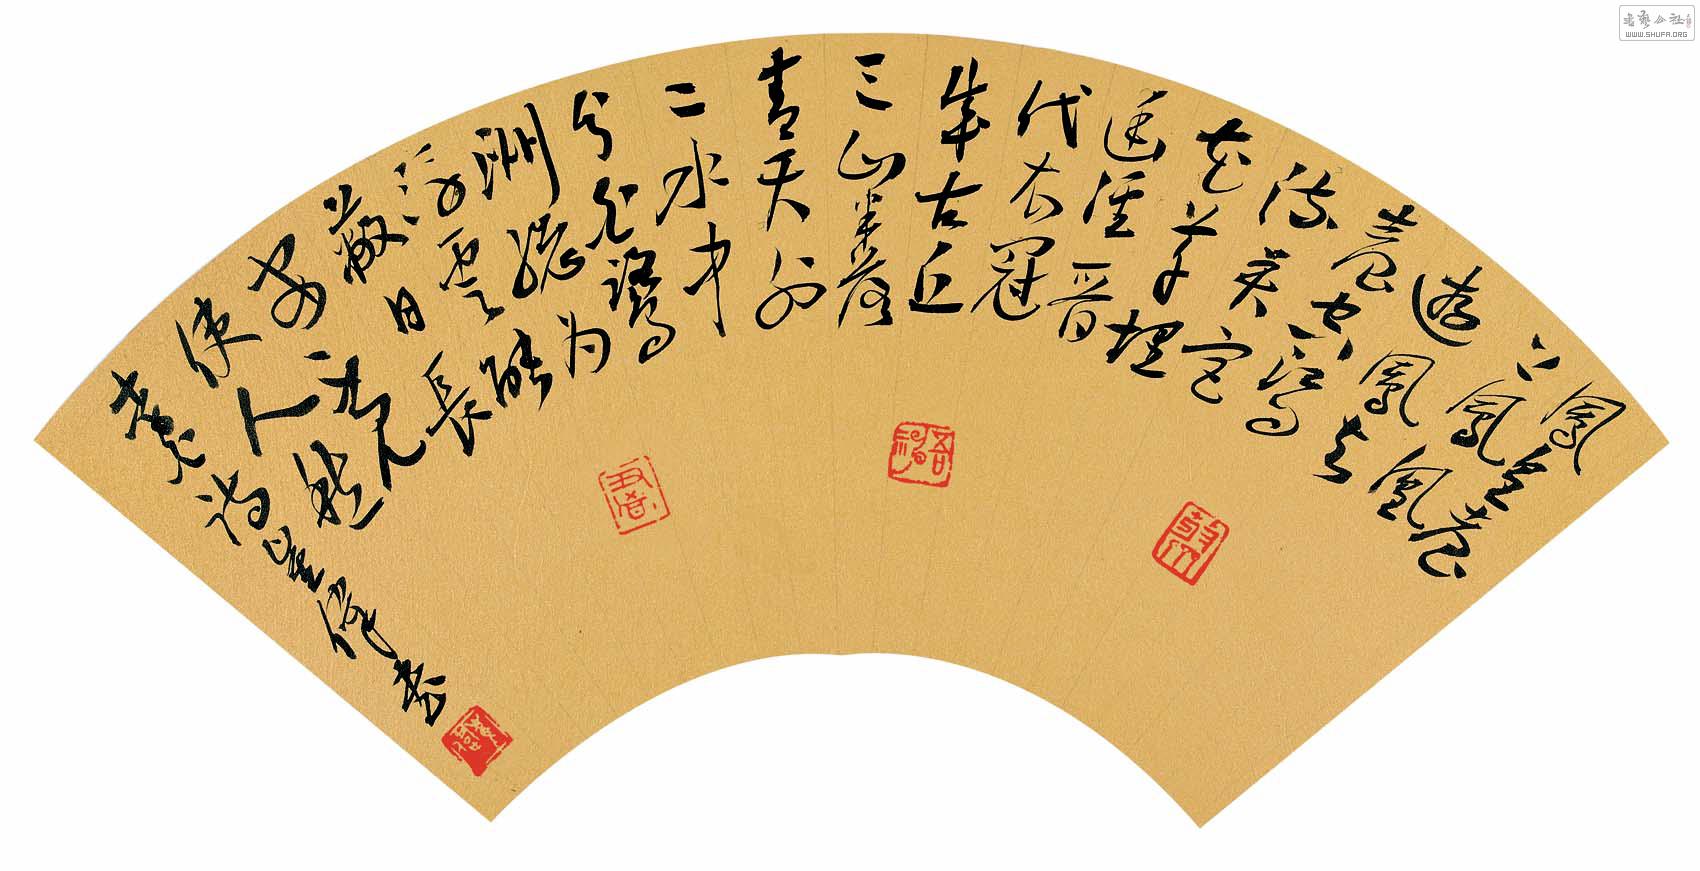 鳳皇臺
上鳳凰
遊鳳去
臺空江自
流吳宮
花草埋
幽徑晉
代衣冠
成古丘
三山半落
青天外
二水中
分白鷺
洲總为
浮雲能
蔽日長
安不見
使人愁
李白詩
WWW.SHUFA.ORG